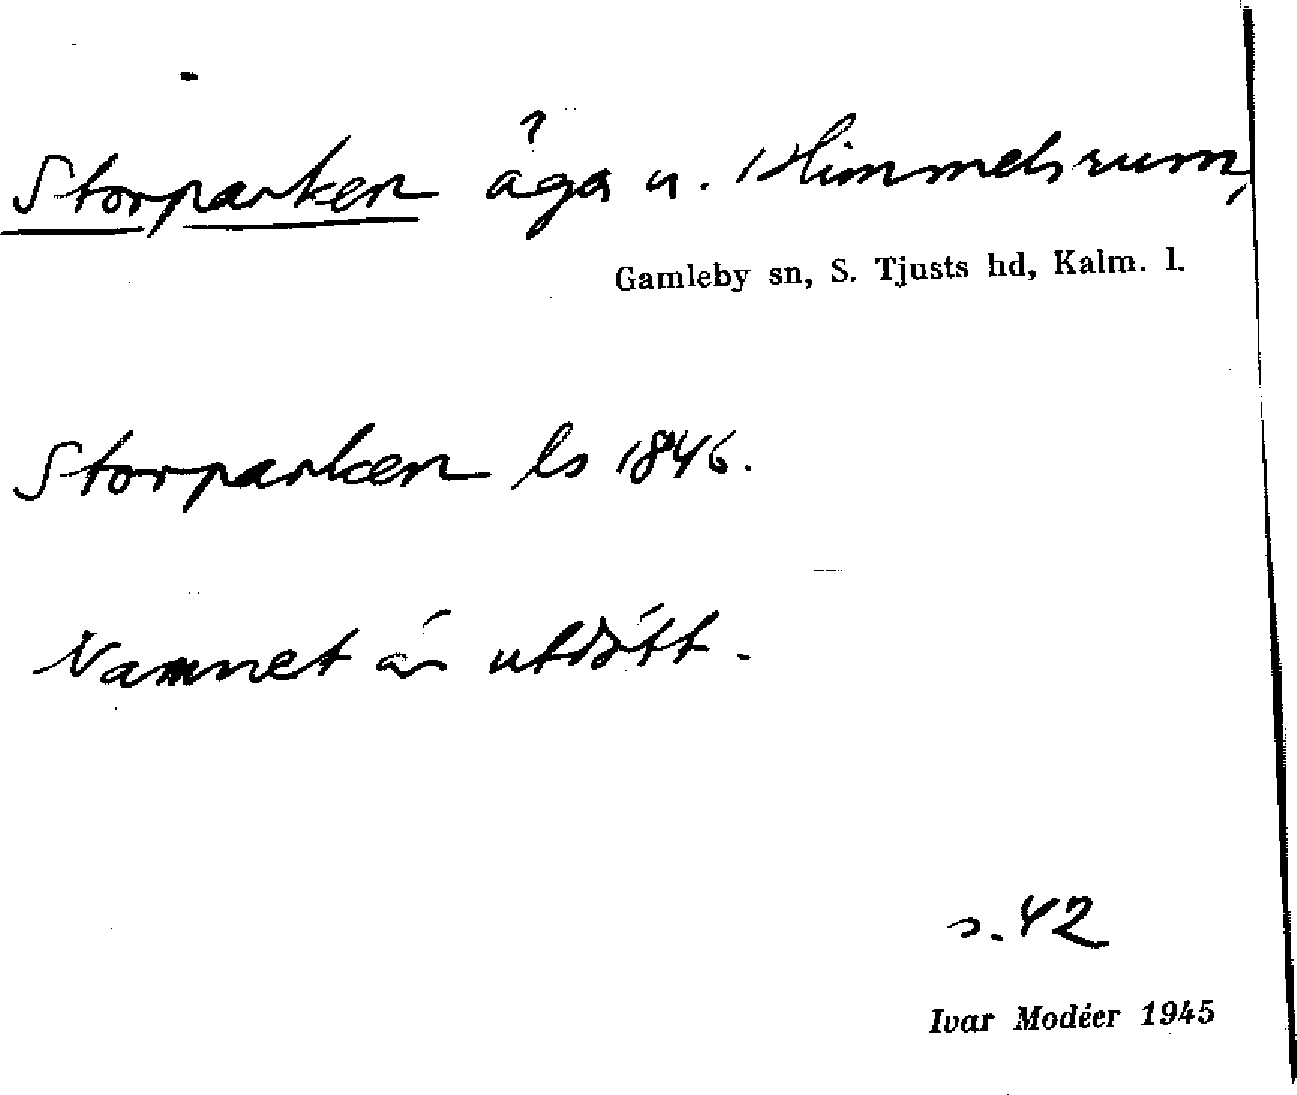 Storparken äga u. Himmelsrum,
Gamleby sn, S. Tjusts hd, Kalm. l.
Storparken ls 1846.
Namnet är utdött.
s. 42
Ivar Modéer 1945